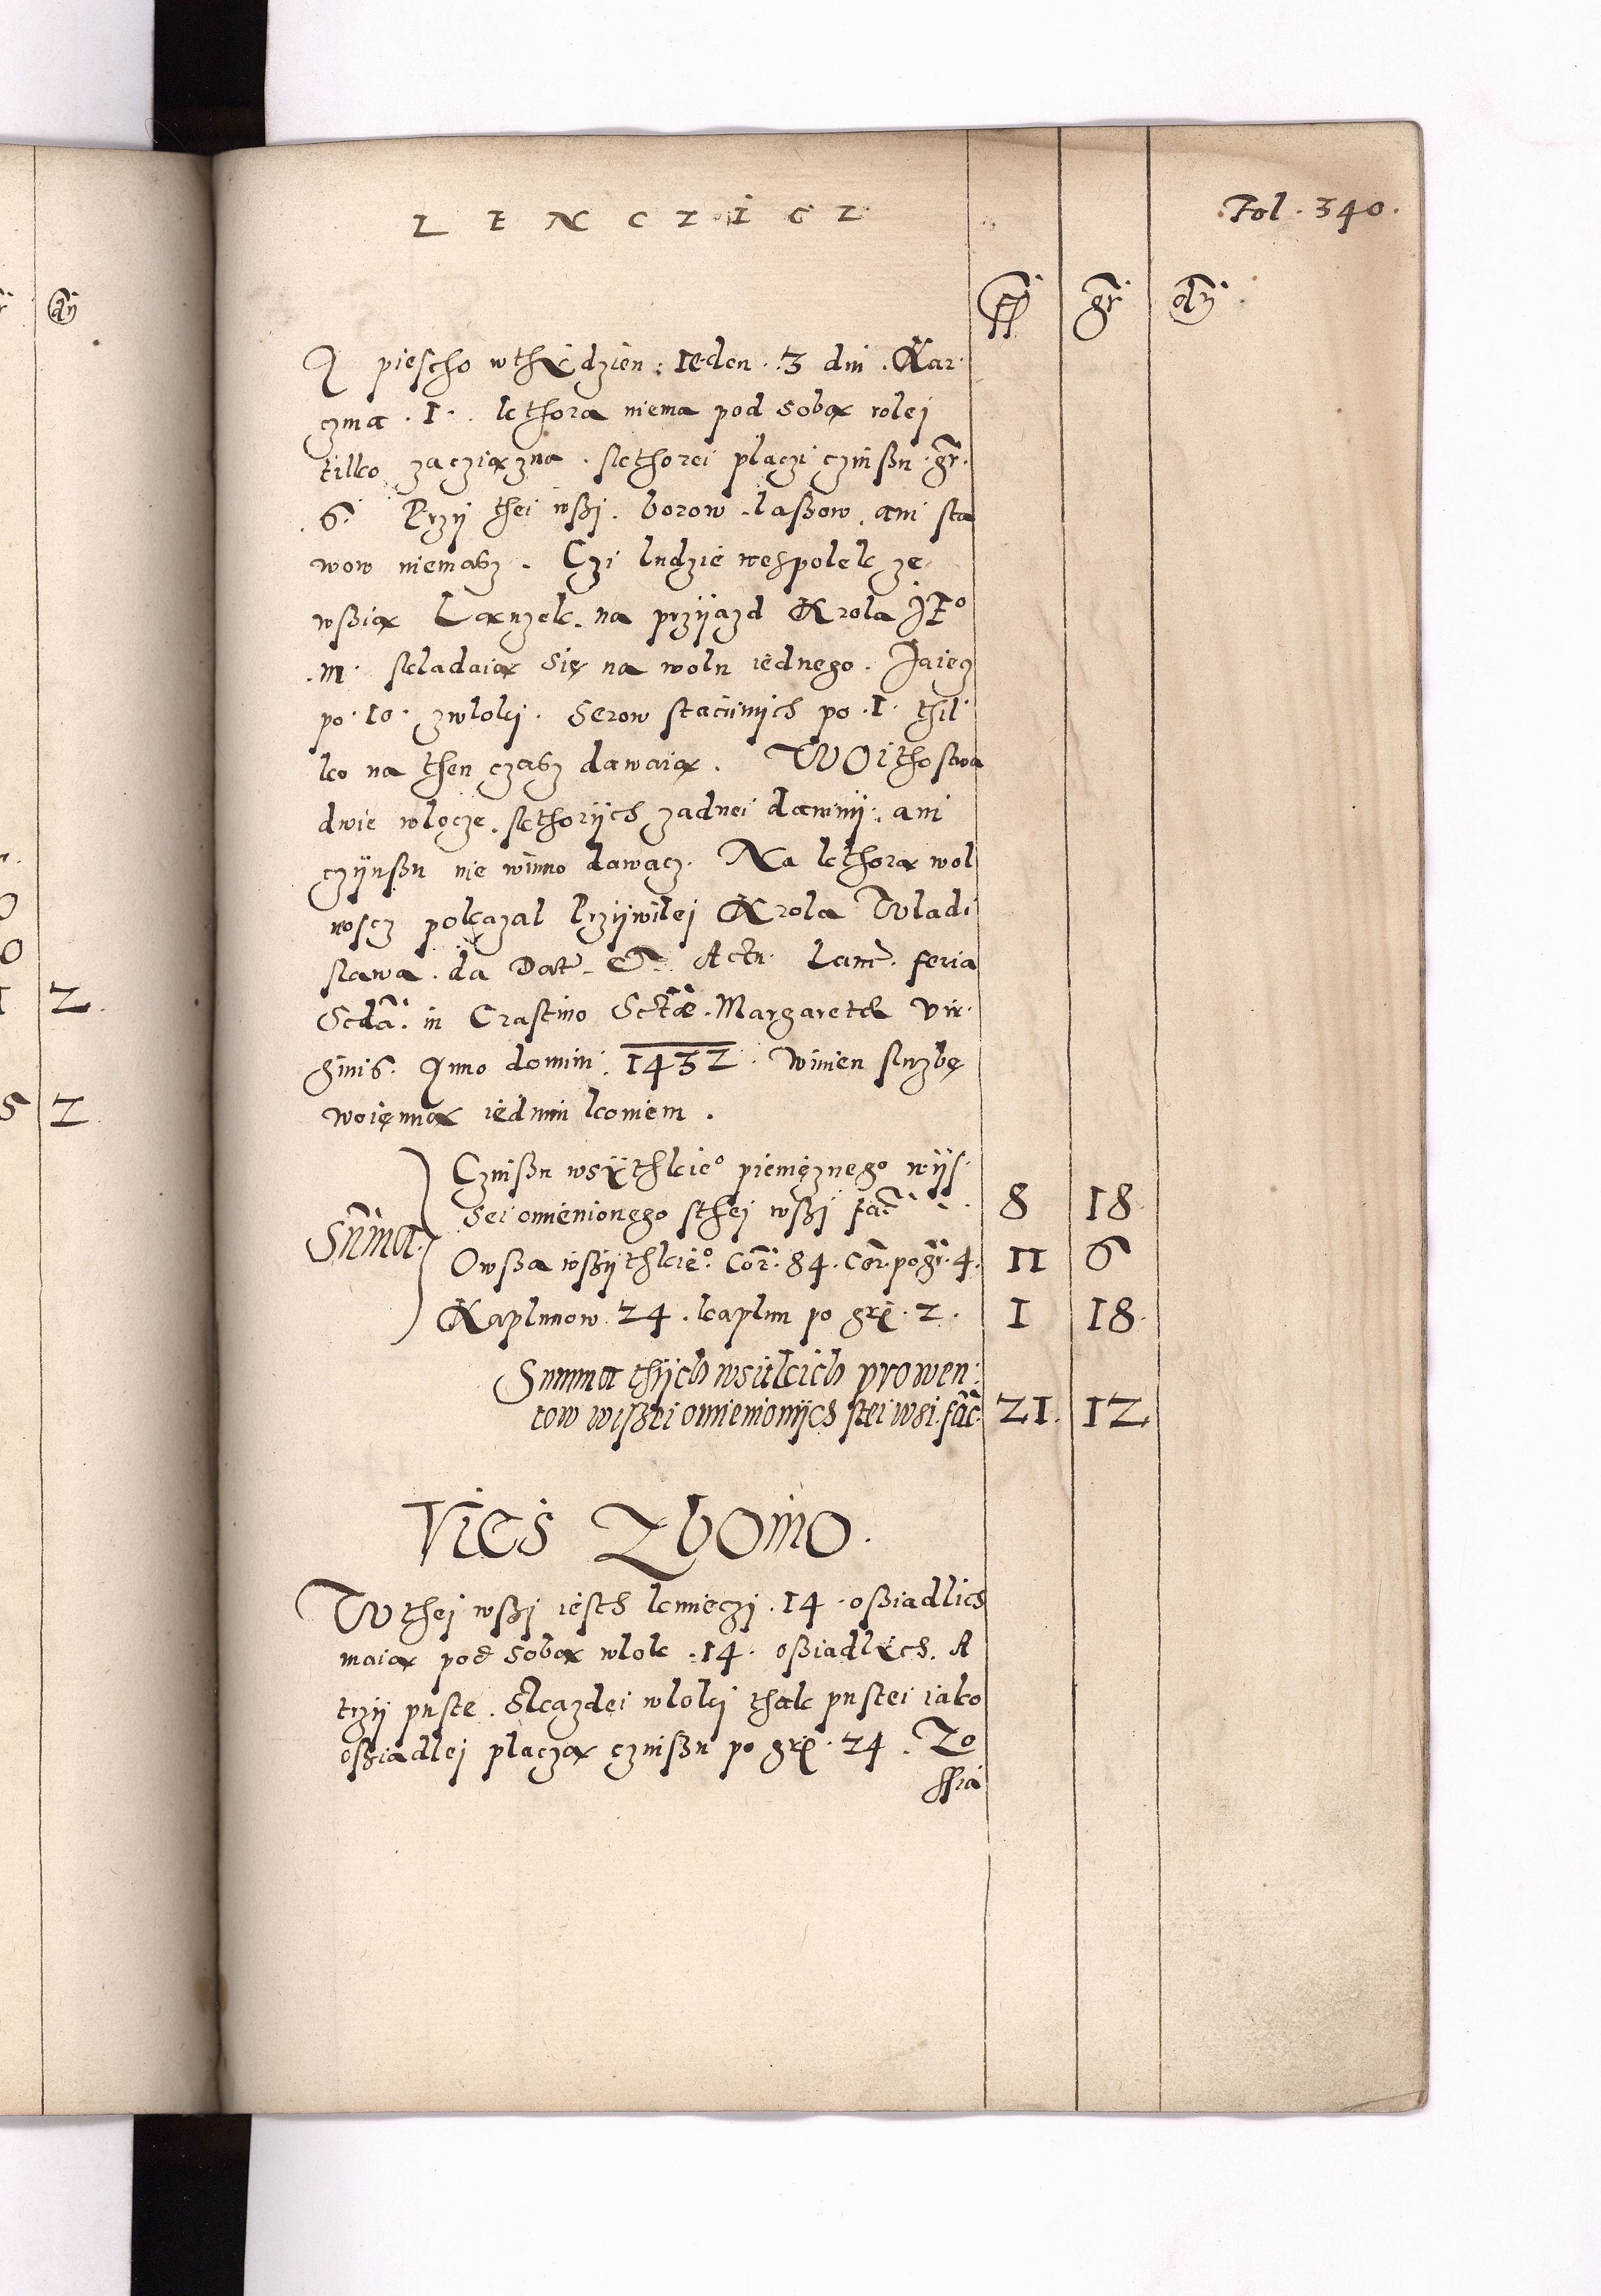 LENCZICZ
Fol. 340.
ff gr dn
A piescho wthydzien. Ieden. 3 dni. Kar
czma. I. kthora niema pod sobą rolej
tilko zacziązna. skthorei placzi czinßu. gr.
6. Przy thei wßj. borow. laßow. ani sta
wow niemasz. Czi ludzie wespolek ze
wßią Lanzek. na przyiazd Krola JEº
m. skladaią się na wolu iednego. Jaiecz
po. 10. zwloki. Serow stacunnych po. I. thil
ko na then czasz dawaią. Woithostwa
dwie wlocze. skthorych zadnei daninij. ani
czynßu nie winno dawacz. Na kthorą wol
noscz pokazal Przywilej Krola Wladi
slawa. da Dat. Et. Actu. Lanc. feria
Scda. in Crastino Sctæ. Margaretæ Vir
ginis. Anno domini. 1432. Winien służbę
woięnną iednim koniem.
Suma.
Czinßu wsythkieº pienięznego wys
sei omienionego sthej wßj fac. 8 18
Owßa wßythkieº. Cor. 84. Cor. po gr. 4. 11 6
Kaplunow. 24. kaplun po grx. 2. I 18
Summa thych wsitkich prowen:
tow wißei omienionych stei wsi. fac. 21. 12
Vies Zbomo.
W thej wßj iesth kmieczi. 14. oßiadlich
maią pod sobą wlok. 14. oßiadlych. A
trzy puste. Skazdei wloki thak pustei iako
oßiadlej placzą czinßu po grx. 24. Zo
ssia